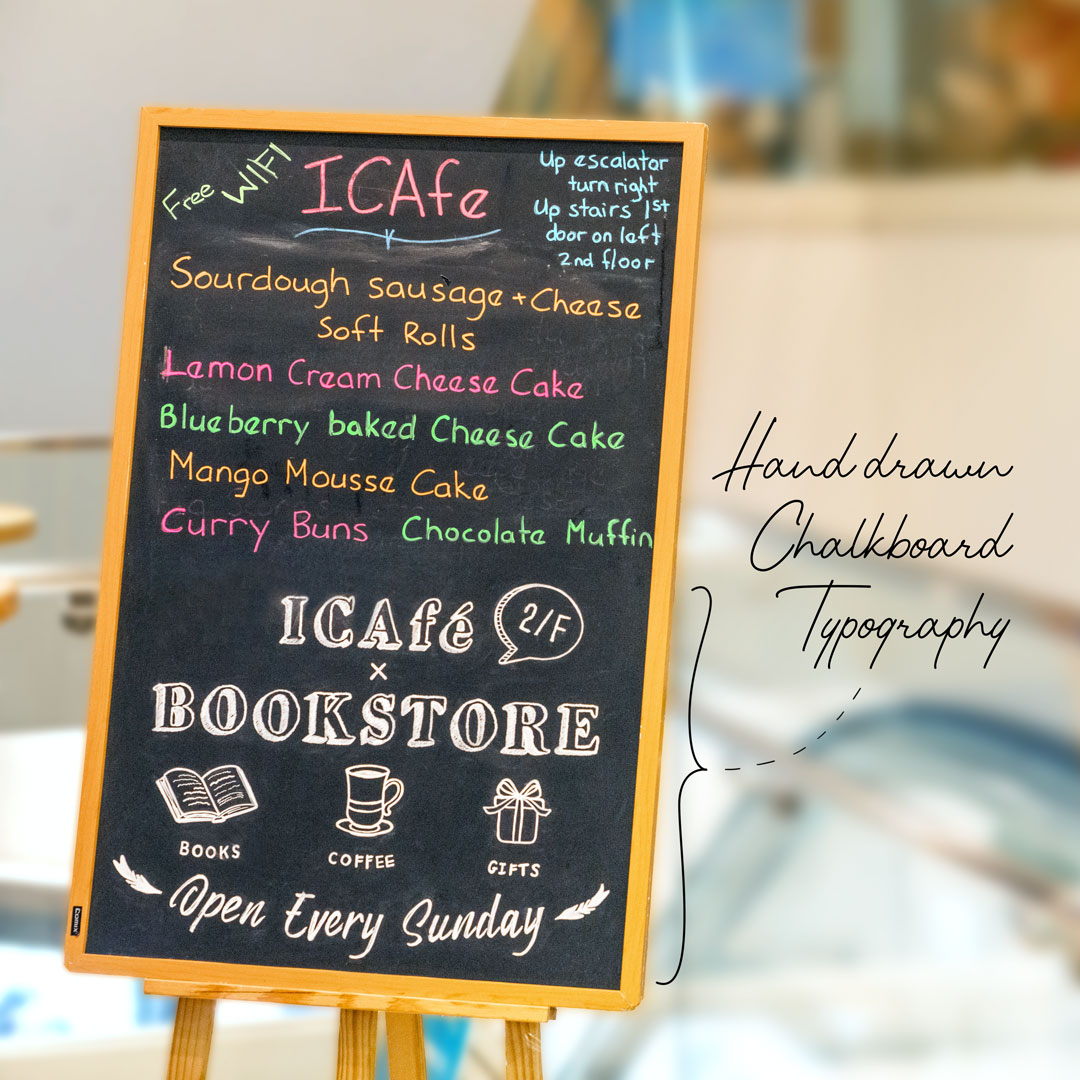 Free WIFI
ICAfe
Up escalator
turn right
Up stairs 1st
door on left
2nd floor
Sourdough sausage + Cheese
Soft Rolls
Lemon Cream Cheese Cake
Blueberry baked Cheese Cake
Mango Mousse Cake
Curry Buns Chocolate Muffin
ICAfé 2/F
x
BOOKSTORE
BOOKS COFFEE GIFTS
Open Every Sunday
Comix
Hand drawn
Chalkboard
Typography